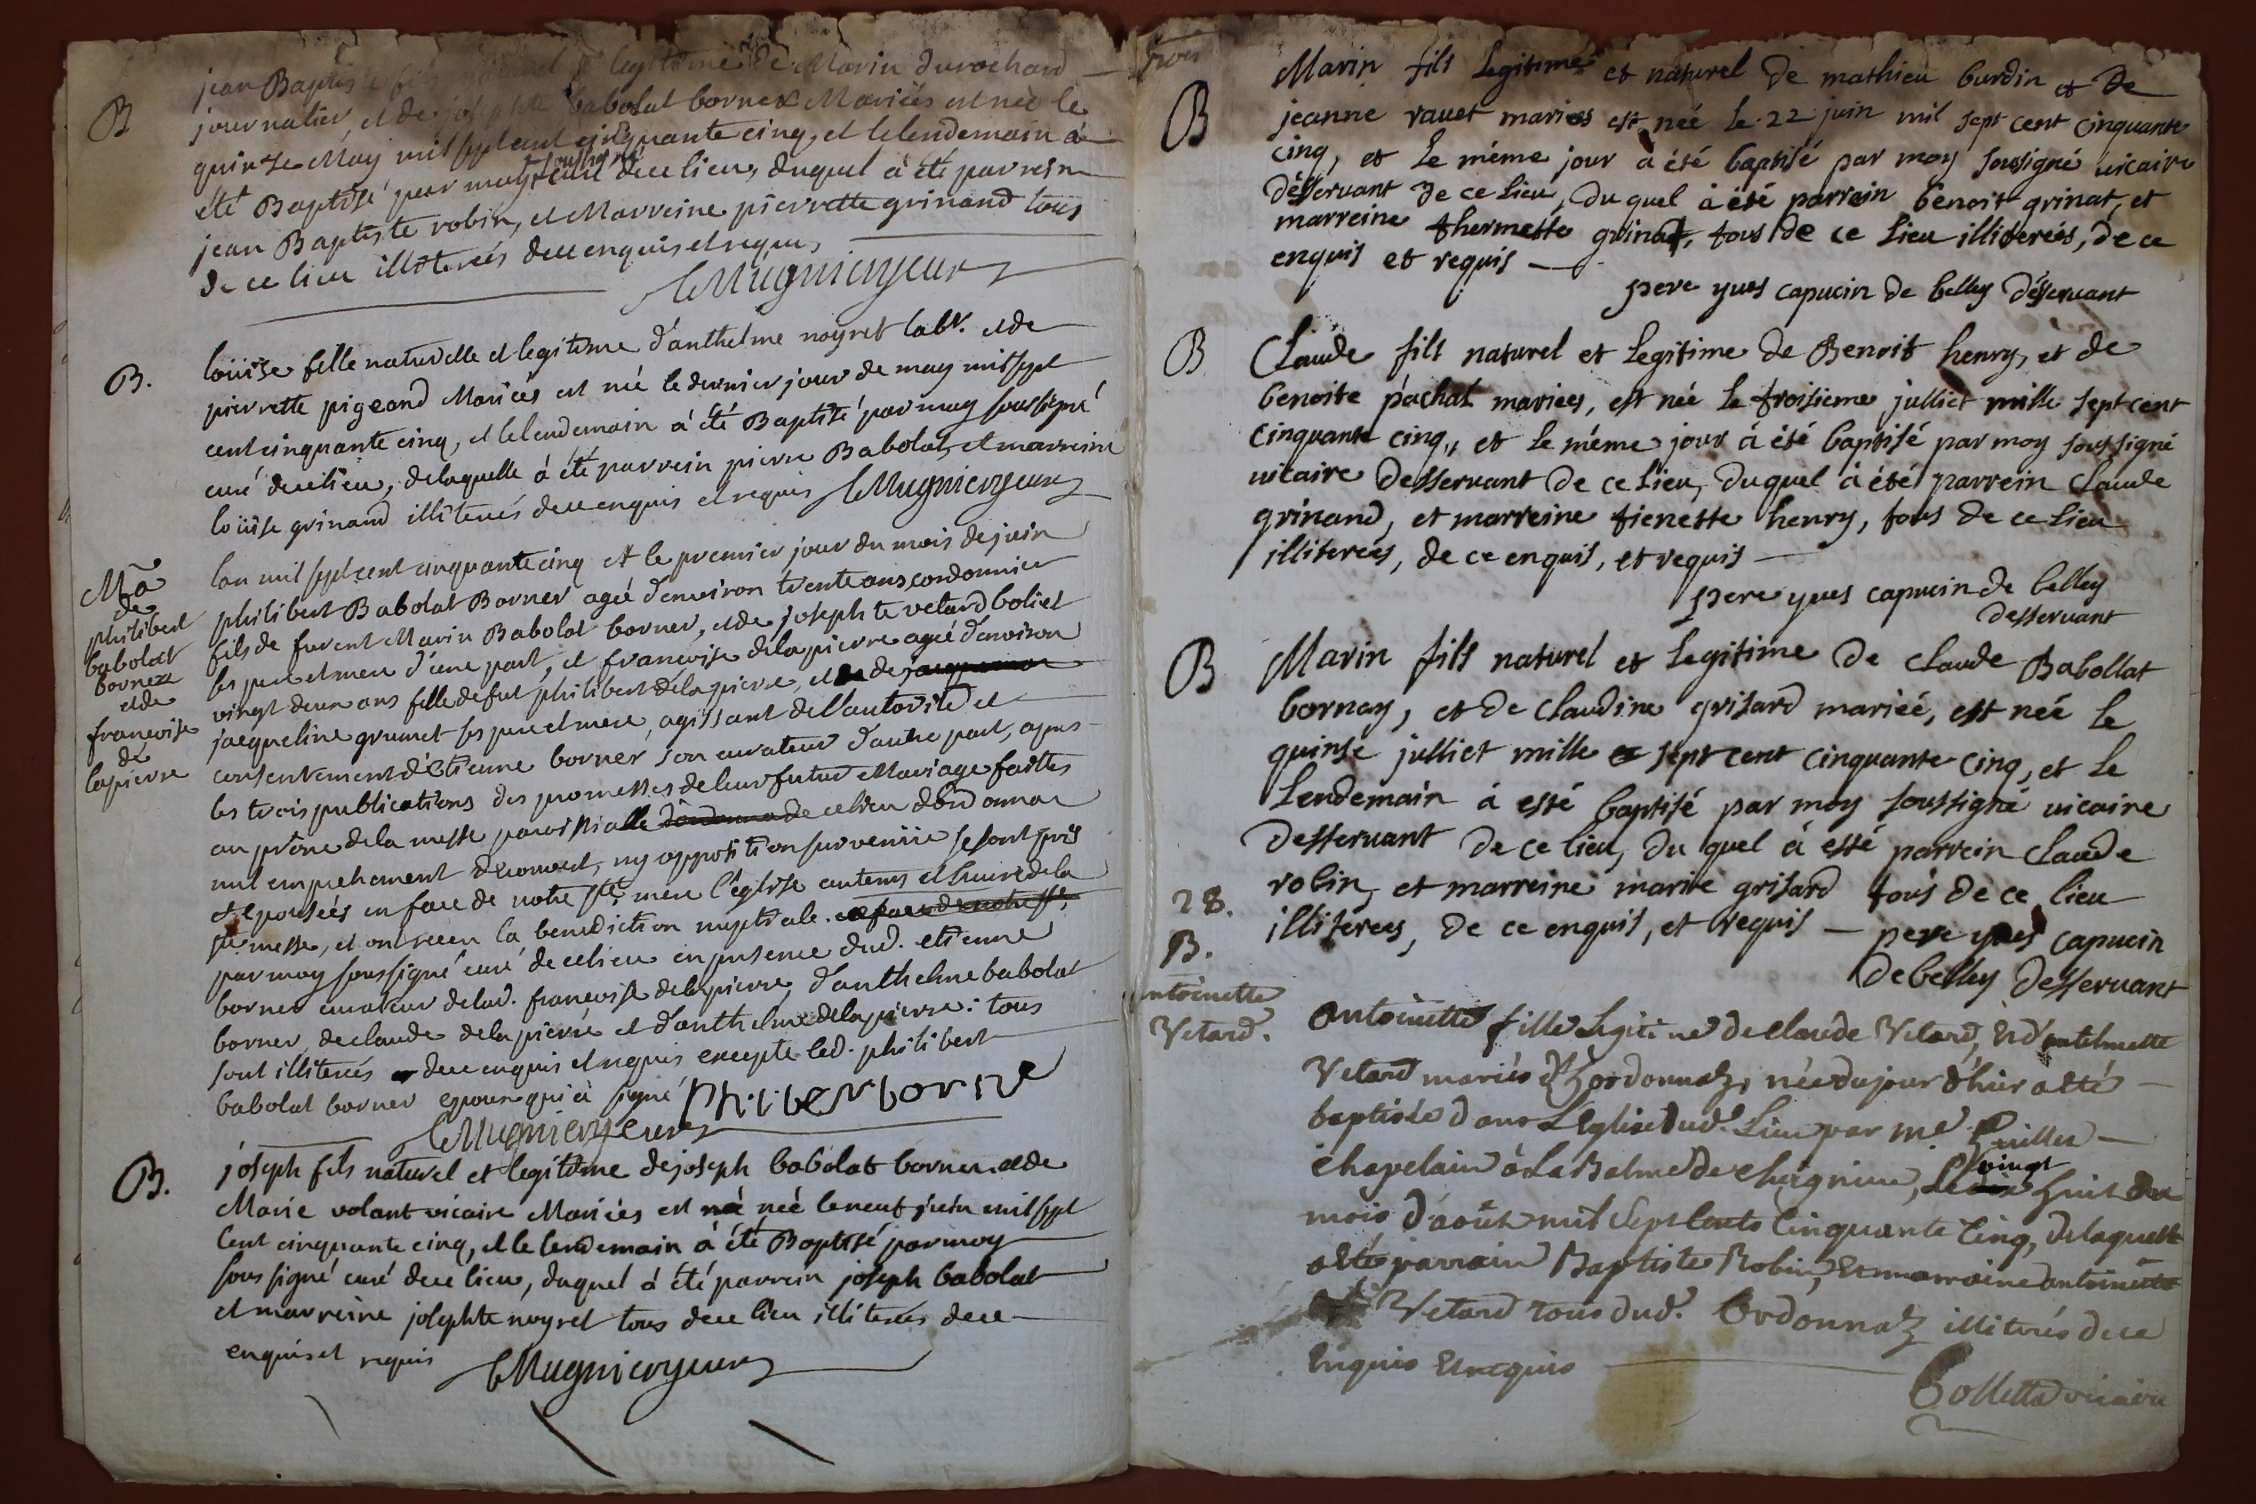 B
jean Baptiste fils naturel et legitime de Marin durochard
journalier, et de josephte babolat bornex Mariés est née le
quinze May mil sept cent cinquante cinq, et le lendemain à
été Baptisé par moy soussigné curé de ce lieu, duquel à été parrein
jean Baptiste robin, et Marreine pierrette grinand tous
de ce lieu illiterés de ce enquis et requis
Mugnier cure
B.
loüise fille naturelle et legitime d'anthelme noyret labr. et de
pierrette pigeond Mariés est né le dernier jour de may mil sept
cent cinquante cinq, et le lendemain à été Baptisé par moy soussigné
curé de ce lieu, de laquelle à été parrein pierre Babolat, et marreine
loüise grinand illiterés de ce enquis et requis Mugnier cure
Ma
de
philibert
babolat
bornex
et de
francoise
de
lapierre
lan mil sept cent cinquante cinq et le premier jour du mois de juin
philibert Babolat Borner ageé d'environ trente ans cordonnier
fils de furent Marin Babolat borner, et de josephte vetard boliet
ses pere et mere d'une part, et francoise delapierre ageé d'environ
vingt deux ans fille de fut philibert delapierre, et de
jacqueline grumet ses pere et mere, agissant de l'autorité et
consentement d'étienne borner son curateur d'autre part, apres
les trois publications des promesses de leur futur Mariage faittes
au prône de la messe paroissialle de ce lieu d'ordonnaz
nul empechement decouvert, ny opposition survenüe se sont pris
et epousées en face de notre ste. mere l'église entenus et suivie de la
ste messe, et ont receu la benediction nuptiale.
par moy soussigné curé de ce lieu en presence dud. etienne
borner curateur de lad. francoise delapierre, d'anthelme babolat
borner, de claude delapierre et d'anthelme delapierre: tous
sont illiterés de ce enquis et requis excepte led. philibert
babolat borner epoux qui à signé philiber borne
Mugnier cure
B.
joseph fils naturel et legitime de joseph babolat borner et de
Marie volant vicaire Mariés est né née le neuf juin mil sept
cent cinquante cinq, et le lendemain à été Baptisé par moy
soussigné curé de ce lieu, duquel à été parrein joseph babolat
et marreine josephte noyret tous de ce lieu illiterés de ce
enquis et requis Mugnier cure
B
Marin fils legitime et naturel de mathieu burdin et de
jeanne ravet mariés est née le 22 juin mil sept cent cinquante
cinq, et le même jour à été baptisé par moy soussigné vicaire
désservant de ce lieu, du quel à été parrein benoit grinat, et
marreine thermette grinat, tous de ce lieu illiterés, de ce
enquis et requis
pere yves capucin de belley désservant
B
Claude fils naturel et legitime de Benoit henry, et de
benoite páchat mariées, est née le troisieme julliet mille sept cent
cinquante cinq,, et le même jour à été baptisé par moy soussigné
vicaire desservant de ce lieu, duquel à été parrein Claude
grinand, et marreine tienette henry, tous de ce lieu
illiterées, de ce enquis, et requis
pere yves capucin de belley
desservant
B
Marin fils naturel et legitime de claude Babollat
bornay, et de claudine grisard marieé, est née le
quinse julliet mille sept cent cinquante cinq, et le
lendemain à esté baptisé par moy soussigné vicaire
desservant de ce lieu, du quel à esté parrein claude
robin, et marreine marie grisard tous de ce lieu
illiterees, de ce enquis, et requis — pere yves capucin
de belley desservant
28.
B.
antoinette
Vetard.
antoinette fille legitime de claude Vetard, et d'antelmette
Vetard mariés d'hordonnaz, née du jour d'hier a eté
baptisée dans L'Eglise dud. Lieu par me
chapelain à La Balme de , Le vingt huit du
mois d'août mil sept cents cinquante cinq, de laquelle
a eté parrain Baptiste Robin, et marraine antoinette
Vetard tous dud. Ordonnaz illiterés de ce
enquis et requis
Collette vicaire